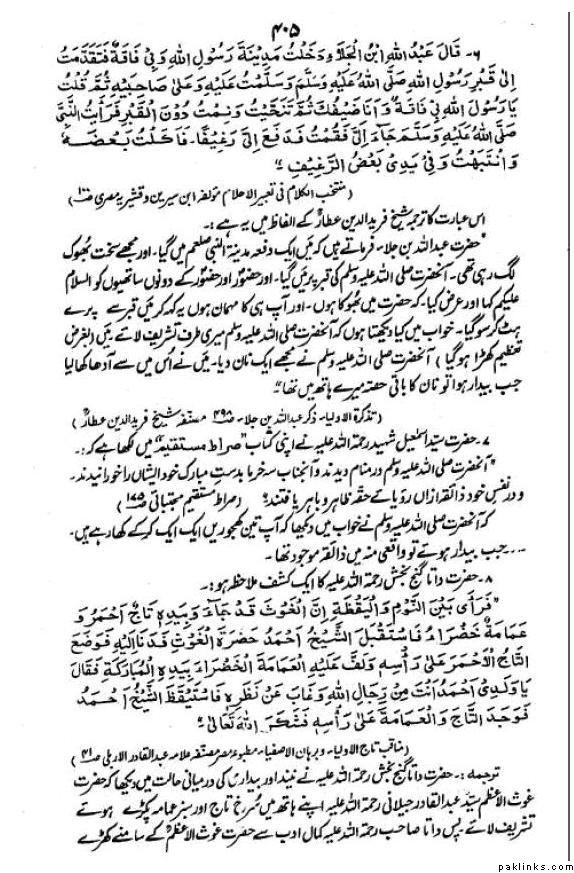 ۴۰۵
۶۔ قَالَ عَبْدُ اللهِ ابْنُ الْجَلَاءِ دَخَلْتُ مَدِيْنَةَ رَسُوْلِ اللهِ وَبِيْ فَاقَةٌ فَتَقَدَّمْتُ
اِلٰی قَبْرِ رَسُوْلِ اللهِ صَلَّى اللهُ عَلَيْهِ وَسَلَّمَ وَسَلَّمْتُ عَلَيْهِ وَعَلٰى صَاحِبَيْهِ ثُمَّ قُلْتُ
يَا رَسُوْلَ اللهِ بِيْ فَاقَةٌ وَاَنَا ضَيْفُكَ ثُمَّ تَنَحَّيْتُ وَنِمْتُ دُوْنَ الْقَبْرِ فَرَاَيْتُ النَّبِيَّ
صَلَّى اللهُ عَلَيْهِ وَسَلَّمَ جَاءَ اِلَيَّ فَقُمْتُ فَدَفَعَ اِلَيَّ رَغِيْفًا۔ فَاَكَلْتُ بَعْضَهٗ
وَانْتَبَهْتُ وَفِيْ يَدِيْ بَعْضُ الرَّغِيْفِ"
(منتخب الکلام فی تعبیر الاحلام مؤلفہ ابن سیرین و قشیریہ مصری ص)
اس عبارت کا ترجمہ شیخ فرید الدین عطارؒ کے الفاظ میں یہ ہے:۔
"حضرت عبداللہ بن جلاء۔ فرماتے ہیں کہ میں ایک دفعہ مدینۃ النبی صلعم میں گیا۔ اور مجھے سخت بھوک
لگ رہی تھی۔ آنحضرت صلی اللہ علیہ وسلم کی قبر پر میں گیا۔ اور حضورؐ اور حضورؐ کے دونوں ساتھیوں کو السلام
علیکم کہا اور عرض کیا۔ کہ حضرت میں بھوکا ہوں۔ اور آپ ہی کا مہمان ہوں یہ کہہ کر میں قبر سے پرے
ہٹ کر سو گیا۔ خواب میں کیا دیکھتا ہوں کہ آنحضرت صلی اللہ علیہ وسلم میری طرف تشریف لائے ہیں (بغرض
تعظیم کھڑا ہو گیا) آنحضرت صلی اللہ علیہ وسلم نے مجھے ایک نان دیا۔ میں نے اس میں سے آدھا کھا لیا
جب بیدار ہوا تو نان کا باقی حصہ میرے ہاتھ میں تھا"
(تذکرۃ الاولیاء۔ ذکر عبداللہ بن جلاء ص۴۹۸ مصنفہ شیخ فرید الدین عطارؒ)
۷۔ حضرت سید اسمٰعیل شہید رحمۃ اللہ علیہ نے اپنی کتاب "صراط مستقیم" میں لکھا ہے کہ:۔
"آنحضرت صلی اللہ علیہ وسلم در منام دیدند و آنجناب سہ خرما بدست مبارک خود ایشاں را خورانیدند۔
و در نفس خود ذائقہ ازاں رؤیائے حقہ ظاہر و باہر یافتند" (صراط مستقیم مجتبائی ص۱۷۵)
کہ آنحضرت صلی اللہ علیہ وسلم نے خواب میں دکھا کہ آپ تین کھجوریں ایک ایک کر کے کھا رہے ہیں۔
.... جب بیدار ہوئے تو واقعی منہ میں ذائقہ موجود تھا۔
۸۔ حضرت داتا گنج بخش رحمۃ اللہ علیہ کا ایک کشف ملاحظہ ہو:۔
"فَرَاٰی بَيْنَ النَّوْمِ وَالْيَقْظَةِ اِنَّ الْغَوْثَ قَدْ جَاءَ وَبِيَدِهٖ تَاجٌ اَحْمَرُ وَ
عَمَامَةٌ خَضْرَاءُ فَاسْتَقْبَلَ الشَّيْخُ اَحْمَدُ حَضْرَةَ الْغَوْثِ فَدَنَا اِلَيْهِ فَوَضَعَ
التَّاجَ الْاَحْمَرَ عَلٰی رَأْسِهٖ وَلَفَّ عَلَيْهِ الْعَمَامَةَ الْخَضْرَاءَ بِيَدِهِ الْمُبَارَكَةِ فَقَالَ
يَا وَلَدِيْ اَحْمَدُ اَنْتَ مِنْ رِجَالِ اللهِ وَغَابَ عَنْ نَظَرِهٖ فَاسْتَيْقَظَ الشَّيْخُ اَحْمَدُ
فَوَجَدَ التَّاجَ وَالْعَمَامَةَ عَلٰی رَأْسِهٖ فَشَكَرَ اللهَ تَعَالٰی"
(مناقب تاج الاولیاء و برہان الاصفیاء مطبوعہ مصر مصنفہ علامہ عبدالقادر الاربلی ص۴۱)
ترجمہ:۔ حضرت داتا گنج بخش رحمۃ اللہ علیہ نے نیند اور بیداری کی درمیانی حالت میں دیکھا کہ حضرت
غوث الاعظم سید عبدالقادر جیلانی رحمۃ اللہ علیہ اپنے ہاتھ میں سُرخ تاج اور سبز عمامہ پکڑے ہوئے
تشریف لائے پس داتا صاحب رحمۃ اللہ علیہ کمال ادب سے حضرت غوث الاعظمؒ کے سامنے کھڑے
paklinks.com